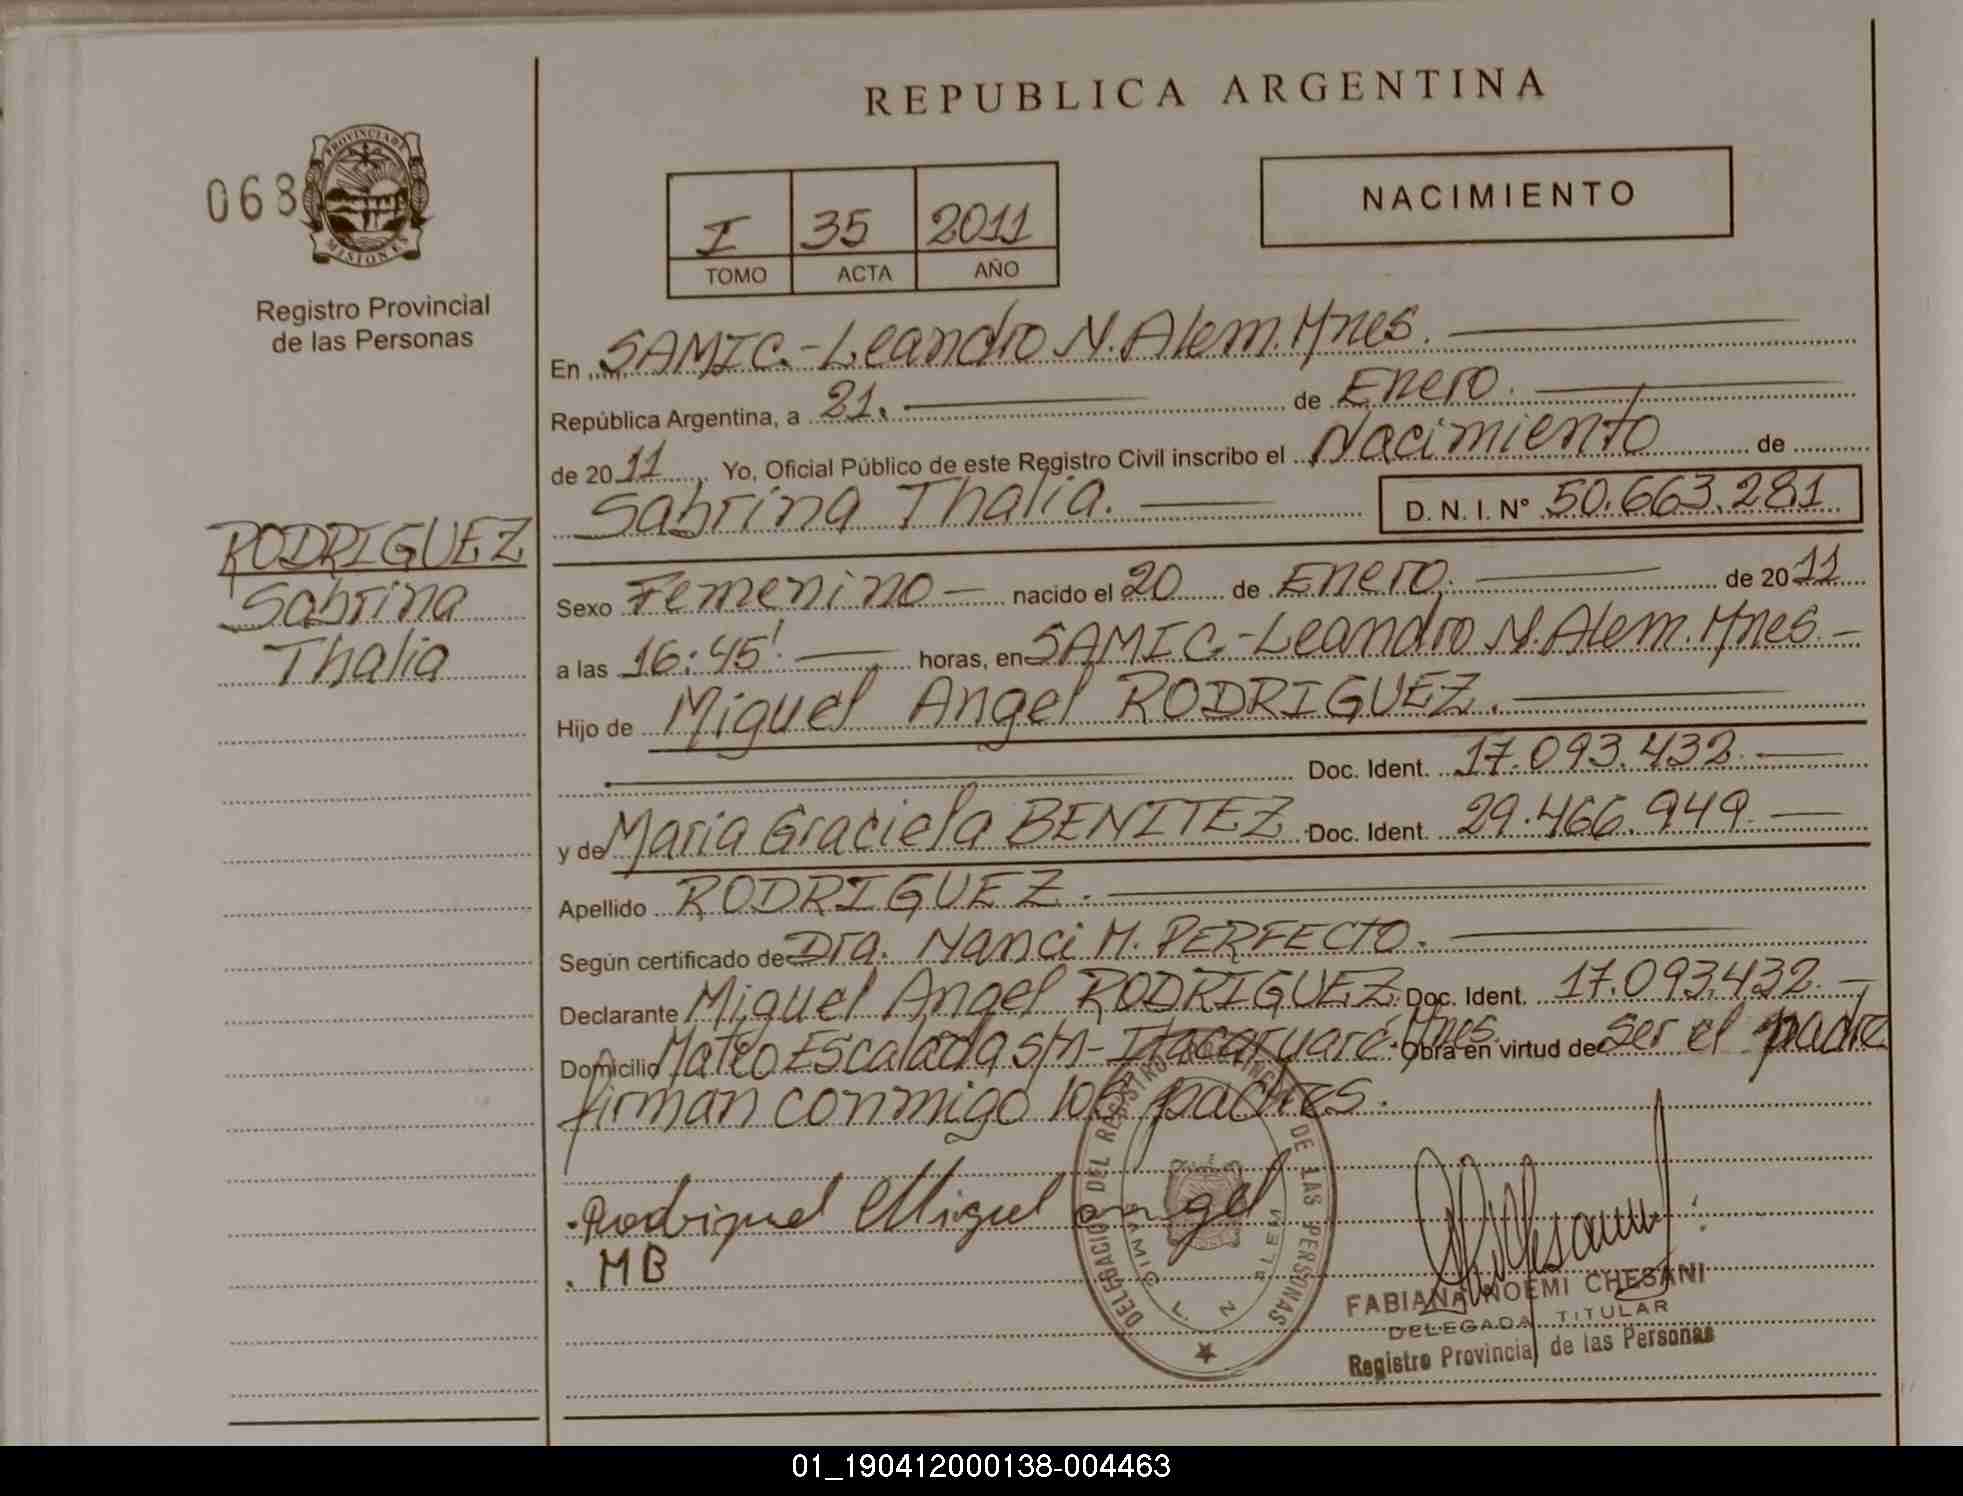 REPUBLICA ARGENTINA
068
PROVINCIA DE
MISIONES
Registro Provincial
de las Personas
I 35 2011
TOMO ACTA AÑO
NACIMIENTO
En SAMIC.-Leandro N. Alem. Mnes.
República Argentina, a 21. de Enero.
de 2011 Yo, Oficial Público de este Registro Civil inscribo el Nacimiento de
Sabrina Thalia. D. N. I. Nº 50.663.281
RODRIGUEZ
Sabrina
Thalia
Sexo Femenino - nacido el 20 de Enero. de 2011
a las 16:45' horas, en SAMIC.-Leandro N. Alem. Mnes.-
Hijo de Miguel Angel RODRIGUEZ.
Doc. Ident. 17.093.432.
y de Maria Graciela BENITEZ Doc. Ident. 29.466.949.
Apellido RODRIGUEZ.
Según certificado de Dra. Nanci M. PERFECTO.
Declarante Miguel Angel RODRIGUEZ. Doc. Ident. 17.093.432.-
Domicilio Mateo Escalada s/n - Itacaruaré. Mnes. Obra en virtud de ser el padre
firman conmigo los padres.
Rodriguez Miguel angel
. MB
DELEGACION DEL REGISTRO PROVINCIAL DE LAS PERSONAS
SAMIC L. N ALEM
FABIANA NOEMI CHESANI
DELEGADA TITULAR
Registro Provincial de las Personas
01_190412000138-004463